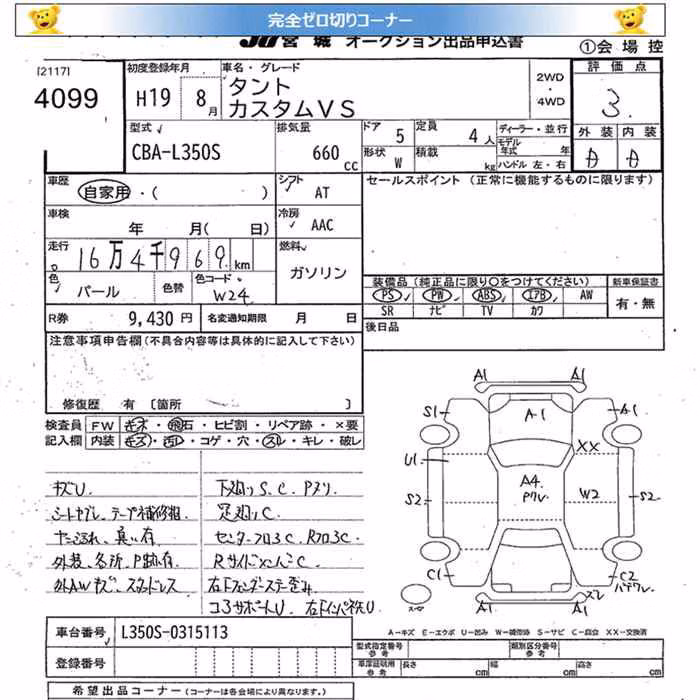 完全ゼロ切りコーナー
JU宮城 オークション出品申込書
①会場控
[2117]
4099
初度登録年月
H19 8月
車名・グレード
タント
カスタムVS
2WD
・
4WD
評価点
3.
外装 内装
A A
型式
CBA-L350S
排気量
660 cc
ドア 5
形状 W
定員 4人
積載 kg
ディーラー・並行
モデル年式 年
ハンドル 左・右
車歴
自家用・( )
シフト
AT
セールスポイント (正常に機能するものに限ります)
車検
年 月( 日)
冷房
AAC
走行
16万4千969km
燃料
ガソリン
色
パール
色替
色コード
W24
装備品(純正品に限り○をつけてください)
PS PW ABS エアB AW
SR ナビ TV カワ
新車保証書
有・無
R券 9,430円
名変通知期限 月 日
後日品
注意事項申告欄(不具合内容等は具体的に記入して下さい)
修復歴 有 [箇所 ]
検査員
記入欄
FW キズ・飛石・ヒビ割・リペア跡・×要
内装 キズ・汚れ・コゲ・穴・スレ・キレ・破レ
キズU.
シートヤブレ、テープ補修相
ヤニ汚れ、臭い有
外装、各所、P跡有
外AWキズ、スタッドレス
下廻りS.C.Pヌリ.
足廻りC
センターフロアC、RフロアC
RサイドメンバーC
右Fフェンダーステー歪み
コアサポートU
右Fインパネ状U
A1 A1
S1 A-1 A1
U1 XX
A4
Pワレ
S2 W2 S2
C1 C2
スレ
A1 A1
スペーマ
A-キズ E-エクボ U-凹み W-補修跡 S-サビ C-腐食 XX-交換済
車台番号 L350S-0315113
登録番号
型式指定番号
参考
類別区分番号
参考
車庫証明用
参考
長さ cm
幅 cm
高さ cm
希望出品コーナー(コーナーは各会場により異なります。)